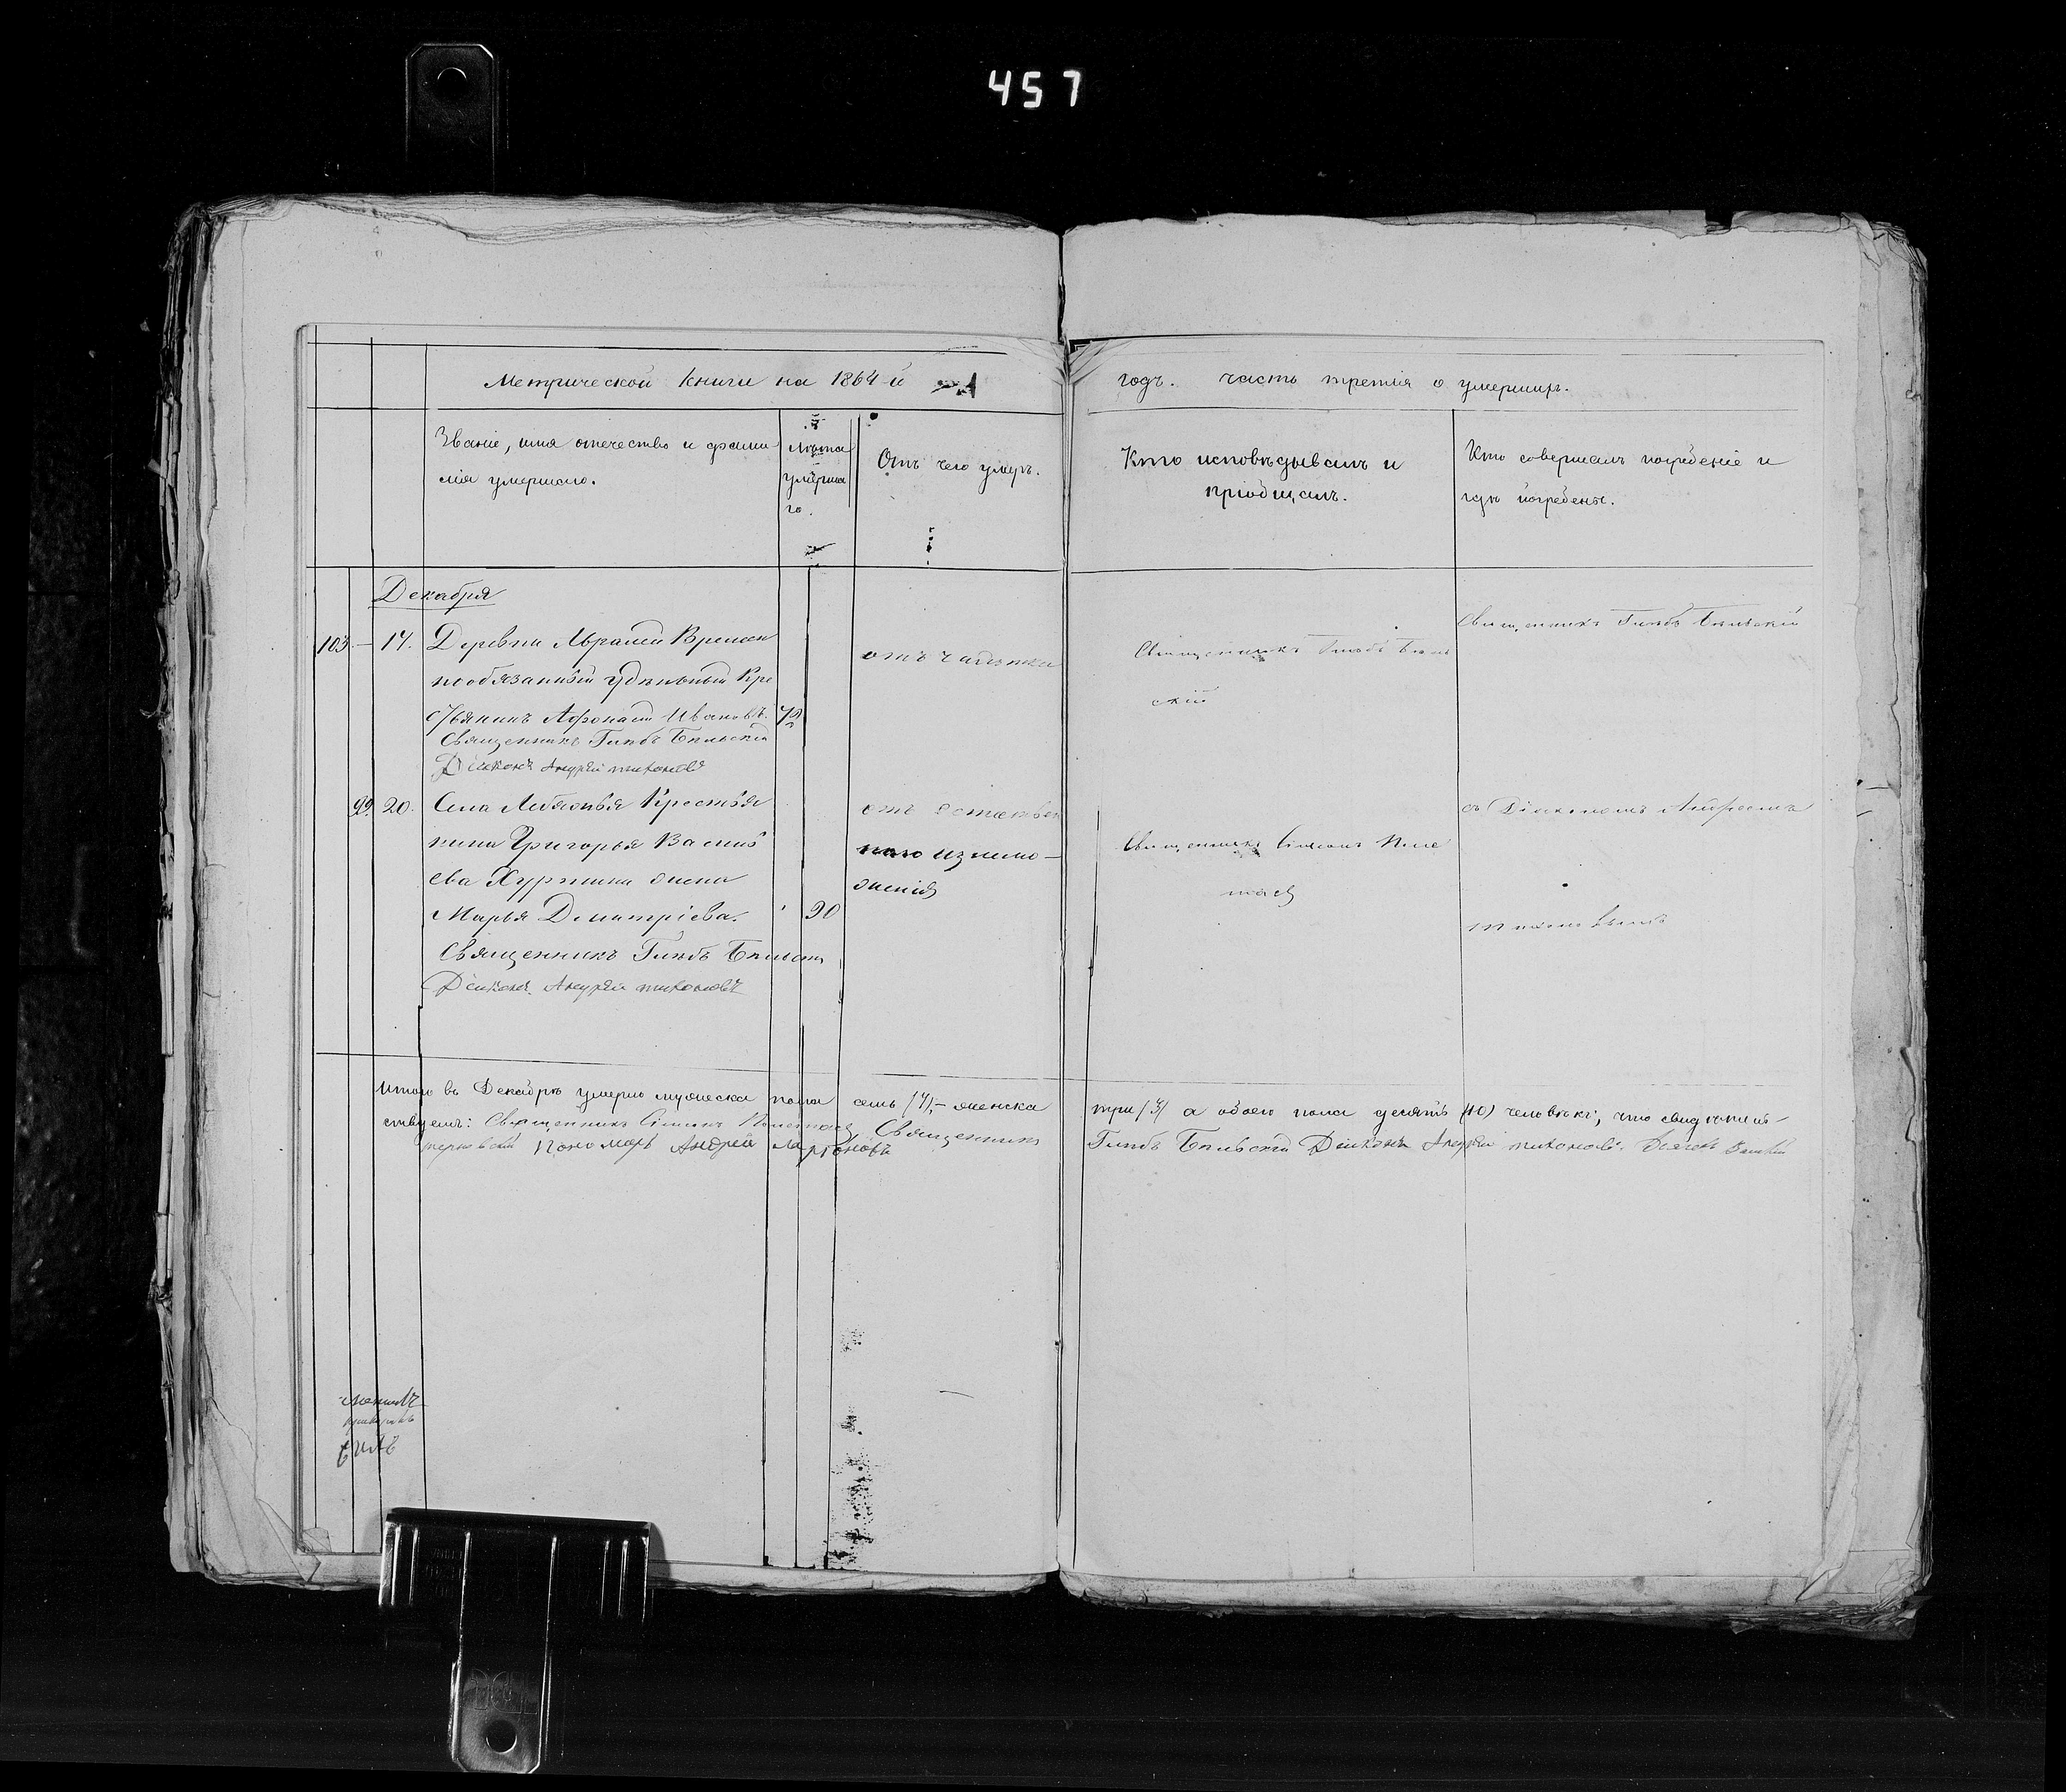 457
Метрической книги на 1864-й
годъ. часть третія о умершихъ.
Званіе, имя отечество и фами-
лія умершаго.
Лѣта
умерша
го.
Отъ чего умеръ.
Кто исповѣдывалъ и
пріобщалъ.
Кто совершалъ погребеніе и
гдѣ погребены.
Декабря
103. — 14. Деревни Времен
нообязанный удѣльный Кре
стьянинъ Афонасій Ивановъ. 72
Священникъ Глѣбъ Бѣльскій
Діаконъ Андрей Тихоновъ
отъ чахотки
Священникъ Глѣбъ Бѣль
скій
Священникъ Глѣбъ Бѣльскій
99. 20. Села Крестья
нина Григорья Василь
ева жена
Марья Димитріева. 90
Священникъ Глѣбъ Бѣльскій
Діаконъ Андрей Тихоновъ
отъ естествен
наго изнемо-
женія
Священникъ Симеонъ
съ Діакономъ Андреемъ
Тихоновымъ
Итого въ Декабрѣ умерло мужеска пола семь (7),- женска
три (3) а обоего пола десять (10) человѣкъ; что свидѣтель-
ствуемъ: Священникъ Симеонъ Священникъ
Глѣбъ Бѣльскій Діаконъ Андрей Тихоновъ.
Пономарь Андрей Ларіоновъ